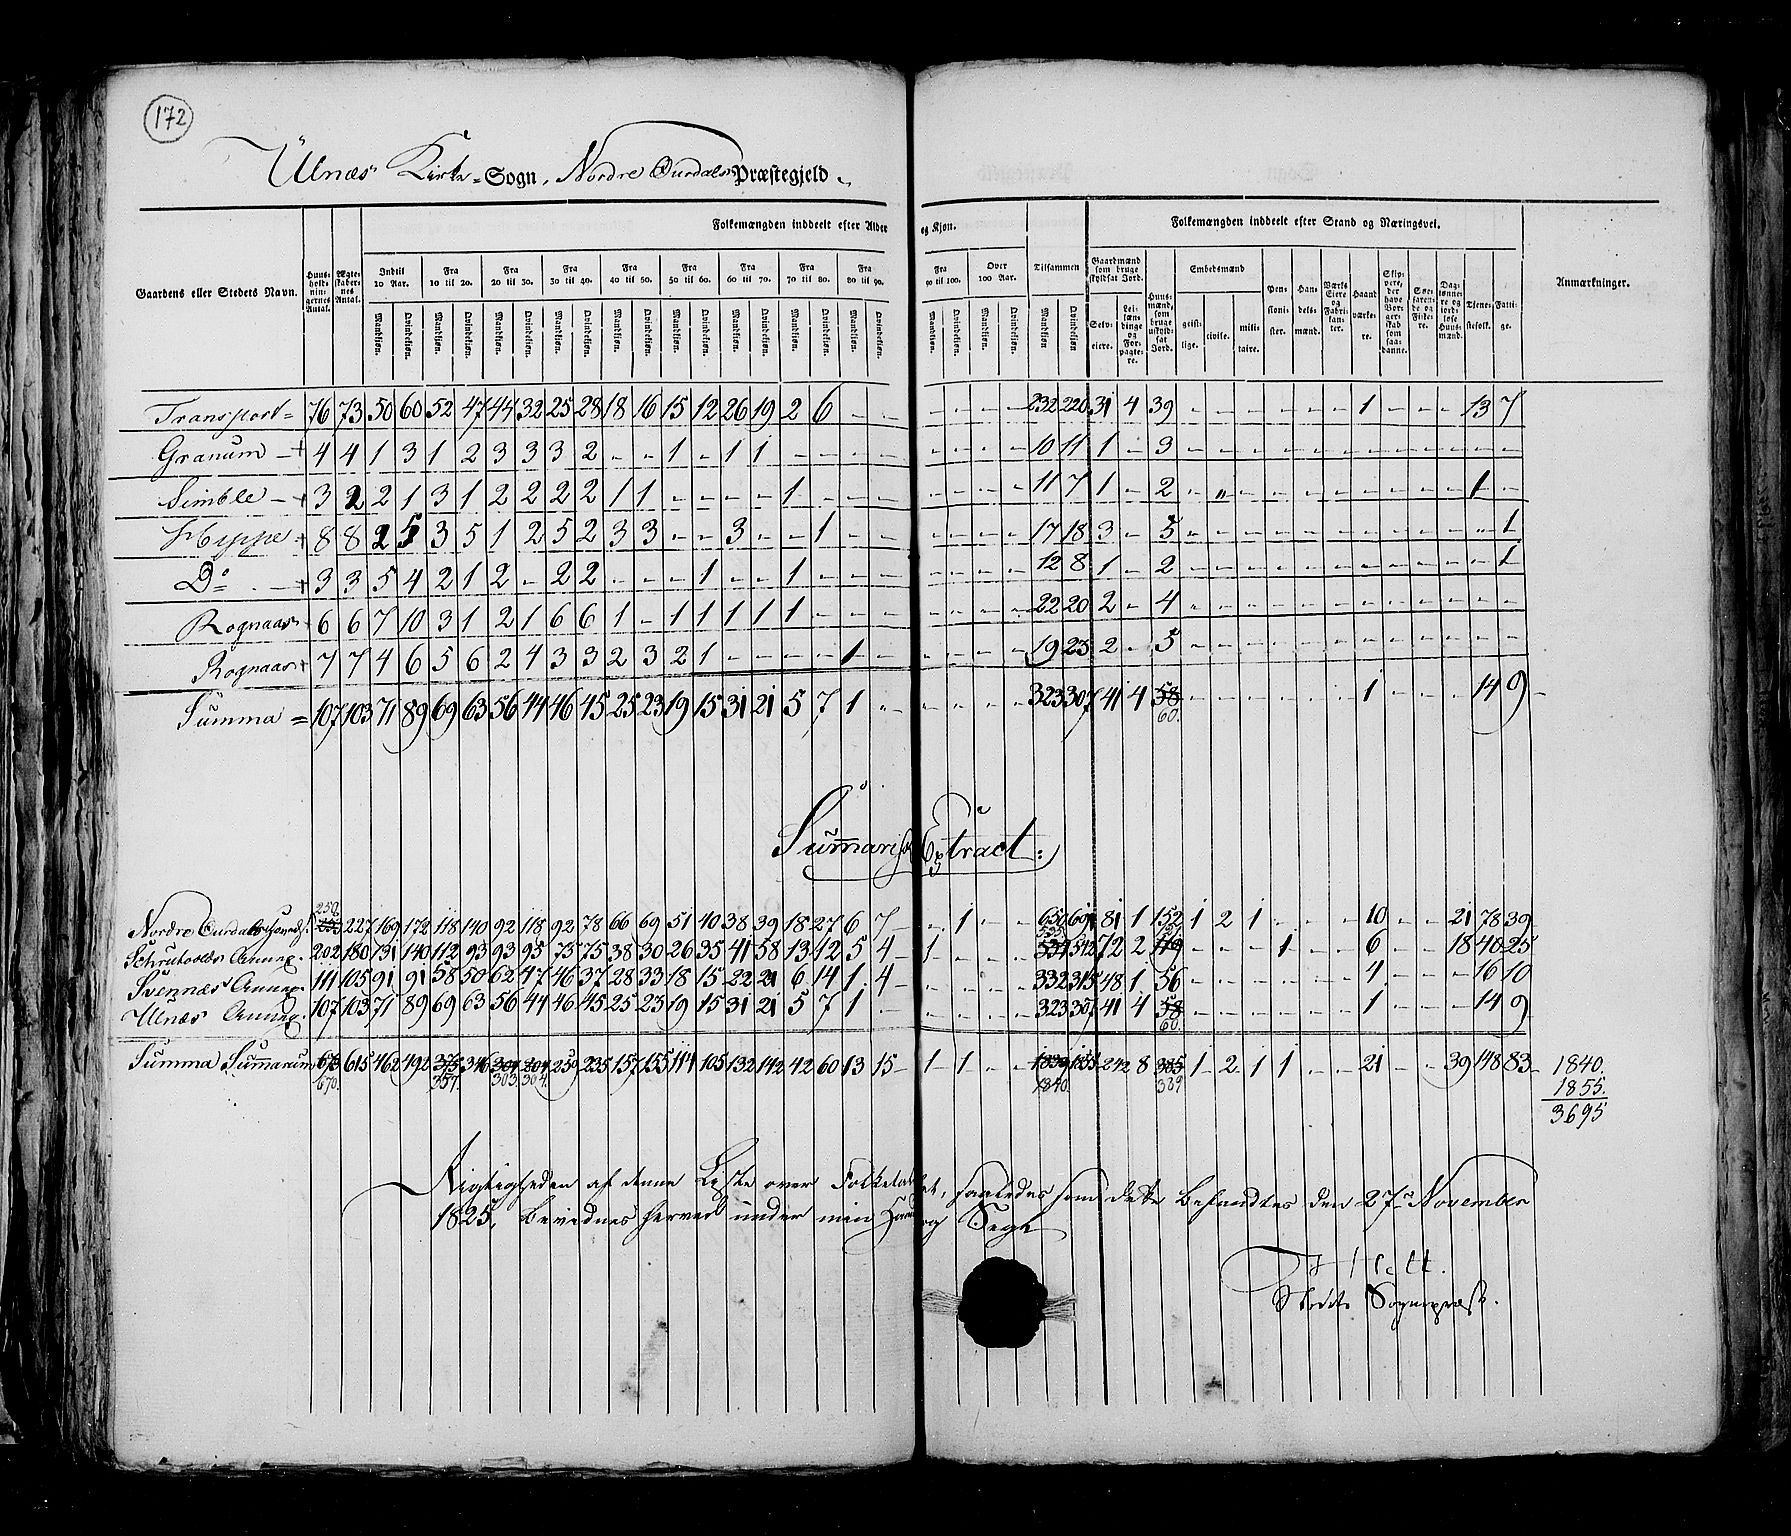 172
Ulnæs Kirke-Sogn, Nordre Ourdals Præstegjeld
Gaardens eller Stedets Navn. Huusholdningernes Antal. Ægteskabernes Antal. Folkemængden inddeelt efter Alder og Kjøn. Folkemængden inddeelt efter Stand og Næringsvei. Anmærkninger.
Indtil 10 Aar. Fra 10 til 20. Fra 20 til 30. Fra 30 til 40. Fra 40 til 50. Fra 50 til 60. Fra 60 til 70. Fra 70 til 80. Fra 80 til 90. Fra 90 til 100. Over 100 Aar. Tilsammen
Mandkiøn. Qvindekiøn.
Gaardmænd som bruge skyldsat Jord. Selveiere. Leilændinge og Forpagtere. Huusmænd, som bruge uskyldsat Jord. Embedsmænd geistlige. civile. militaire. Pensionister. Handelsmænd. Værks Eiere og Fabrikanter. Haandværkere. Skippere, der have Borgerskab som saadanne. Søefarende og Fiskere. Daglønnere og jordløse Huusmænd. Tjenestefolk. Fattige.
Transport = 76 73 50 60 52 47 44 32 25 28 18 16 15 12 26 19 2 6 - - - - - - 232 220 31 4 39 - - - - - - 1 - - - 13 7
Granum - + 4 4 1 3 1 2 3 3 3 2 - - 1 - 1 1 - - - - - - - - 10 11 1 - 3 - - - - - - - - - - - -
Simble - + 3 2 2 1 3 1 2 2 2 2 1 1 - - - - 1 - - - - - - - 11 7 1 - 2 - " - - - - - - - - 1 -
Hippe + 8 8 2 5 3 5 1 2 5 2 3 3 - - 3 - - 1 - - - - - - 17 18 3 - 5 - - - - - - - - - - - 1
Do - + 3 3 5 4 2 1 2 - 2 2 - - - 1 - - 1 - - - - - - - 12 8 1 - 2 - - - - - - - - - - - 1
Rognaas + 6 6 7 10 3 1 2 1 6 6 1 - 1 1 1 1 1 - - - - - - - 22 20 2 - 4 - - - - - - - - - - - -
Rognaas + 7 7 4 6 5 6 2 4 3 3 2 3 2 1 - - - - 1 - - - - - 19 23 2 - 5 - - - - - - - - - - - -
Summa = 107 103 71 89 69 63 56 44 46 45 25 23 19 15 31 21 5 7 1 - - - - - 323 307 41 4 58 - - - - - - 1 - - - 14 9
60.
Summarisk Extract:
250.
Nordre Ourdals 227 169 172 118 140 92 118 92 78 66 69 51 40 38 39 18 27 6 7 - - 1 - - 650 691 81 1 152 1 2 1 - - - 10 - - 21 78 39
Schrutvolds Annex. 202 180 131 140 112 93 93 95 75 75 38 30 26 35 41 58 13 12 5 4 - 1 - - - 542 72 2 - - - 1 - - 6 - - 18 40 25
Svennæs Annex. 111 105 91 91 58 50 62 47 46 37 28 33 18 15 22 21 6 14 1 4 - - - - 332 315 48 1 56 - - - - - - 4 - - - 16 10
Ulnæs Annex. 107 103 71 89 69 63 56 44 46 45 25 23 19 15 31 21 5 7 1 - - - - - 323 307 41 4 58 - - - - - - 1 - - - 14 9
60.
Summa Summarum 615 462 492 346 259 235 157 155 114 105 132 142 42 60 13 15 - 1 1 - - 1839 1855 242 8 385 1 2 1 1 - - 21 - - 39 148 83 - 1840.
670. 357. 303. 304. 1840. 389 1855.
3695
Rigtigheden af denne Liste over Folketallet, saaledes som dette befandtes den 27de November
1825, bevidnes herved under min Haand og Segl
Stedets Sognepræst.